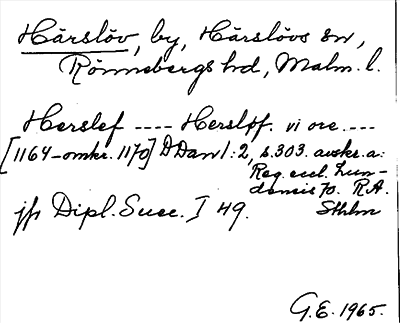 Härslöv, by, Härslövs sn,
Rönnebergs hd, Malm. l.
Herslef ---- Hersløf. vi ore. ---
[1164-omkr. 1170] DDan 1:2, s.303. avskr. a:
Reg. eccl. Lun-
densis 70. R.A.
Sthlm
jfr Dipl. Suec. I 49.
G.E. 1965.